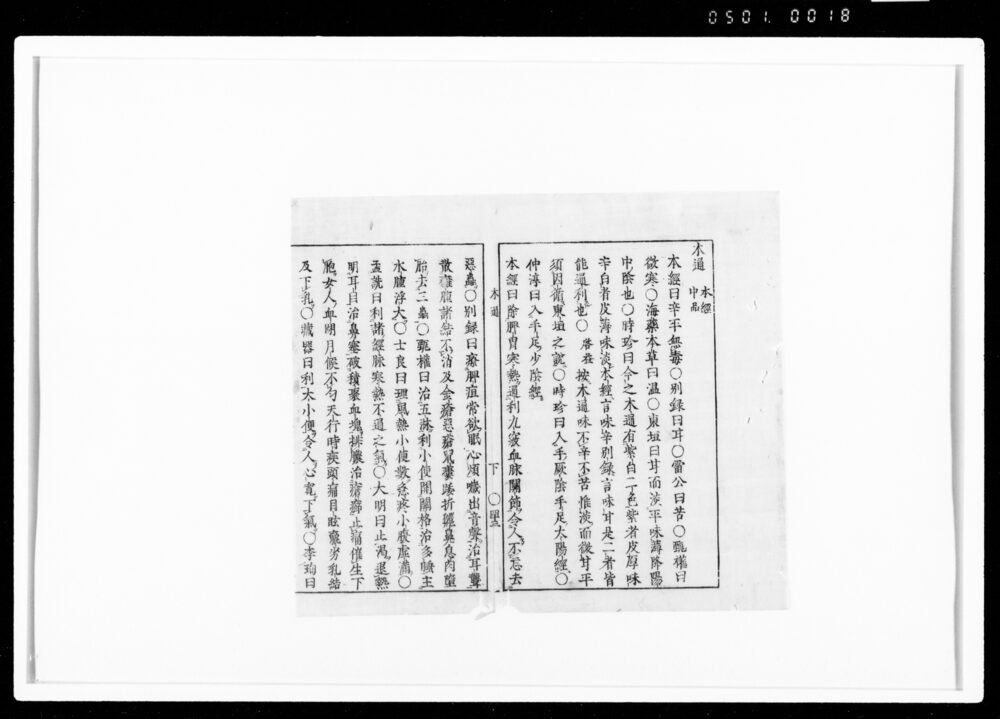 0501.0018
木通 本經中品
本經曰辛平無毒〇別録曰甘〇雷公曰苦〇甄權曰
微寒〇海藥本草曰温〇東垣曰甘而淡平味薄降陽
中陰也〇時珍曰今之木通有紫白二色紫者皮厚味
辛白者皮薄味淡本經言味辛別錄言味甘是二者皆
能通利也〇 按木通味不辛不苦惟淡而微甘平
須因循東垣之說〇時珍曰入手厥陰手足太陽經〇
仲淳曰入手足少陰經
本經曰除脾胃寒熱通利九竅血脉關節令人不忘去
木通 下 〇
惡蟲〇別録曰療脾疸常欲眠心煩噦出音聲治耳聾
散癰腫諸結不消及金瘡惡瘡鼠瘻踒折齆鼻息肉墮
胎去三蟲〇甄權曰治五淋利小便開關格治多睡主
水腫浮大〇士良曰理風熱小便數急疼小腹虛滿〇
孟詵曰利諸經脉寒熱不通之氣〇大明曰止渴退熱
明耳目治鼻塞破積聚血塊排膿治瘡癤止痛催生下
胞女人血閉月候不勻天行時疾頭痛目眩羸劣乳結
及下乳〇藏器曰利大小便令人心寬下氣〇李珣曰